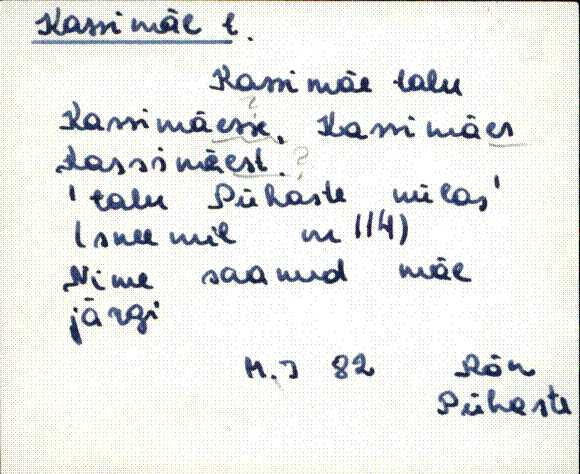 Kassimäe t.
Kassi mäe talu
?
Kassimäesse, Kassimäes
Kassimäest. ?
'talu Pühaste külas'
nr 114)
Nime saanud mäe
järgi
M.J 82 Rõn
Pühaste